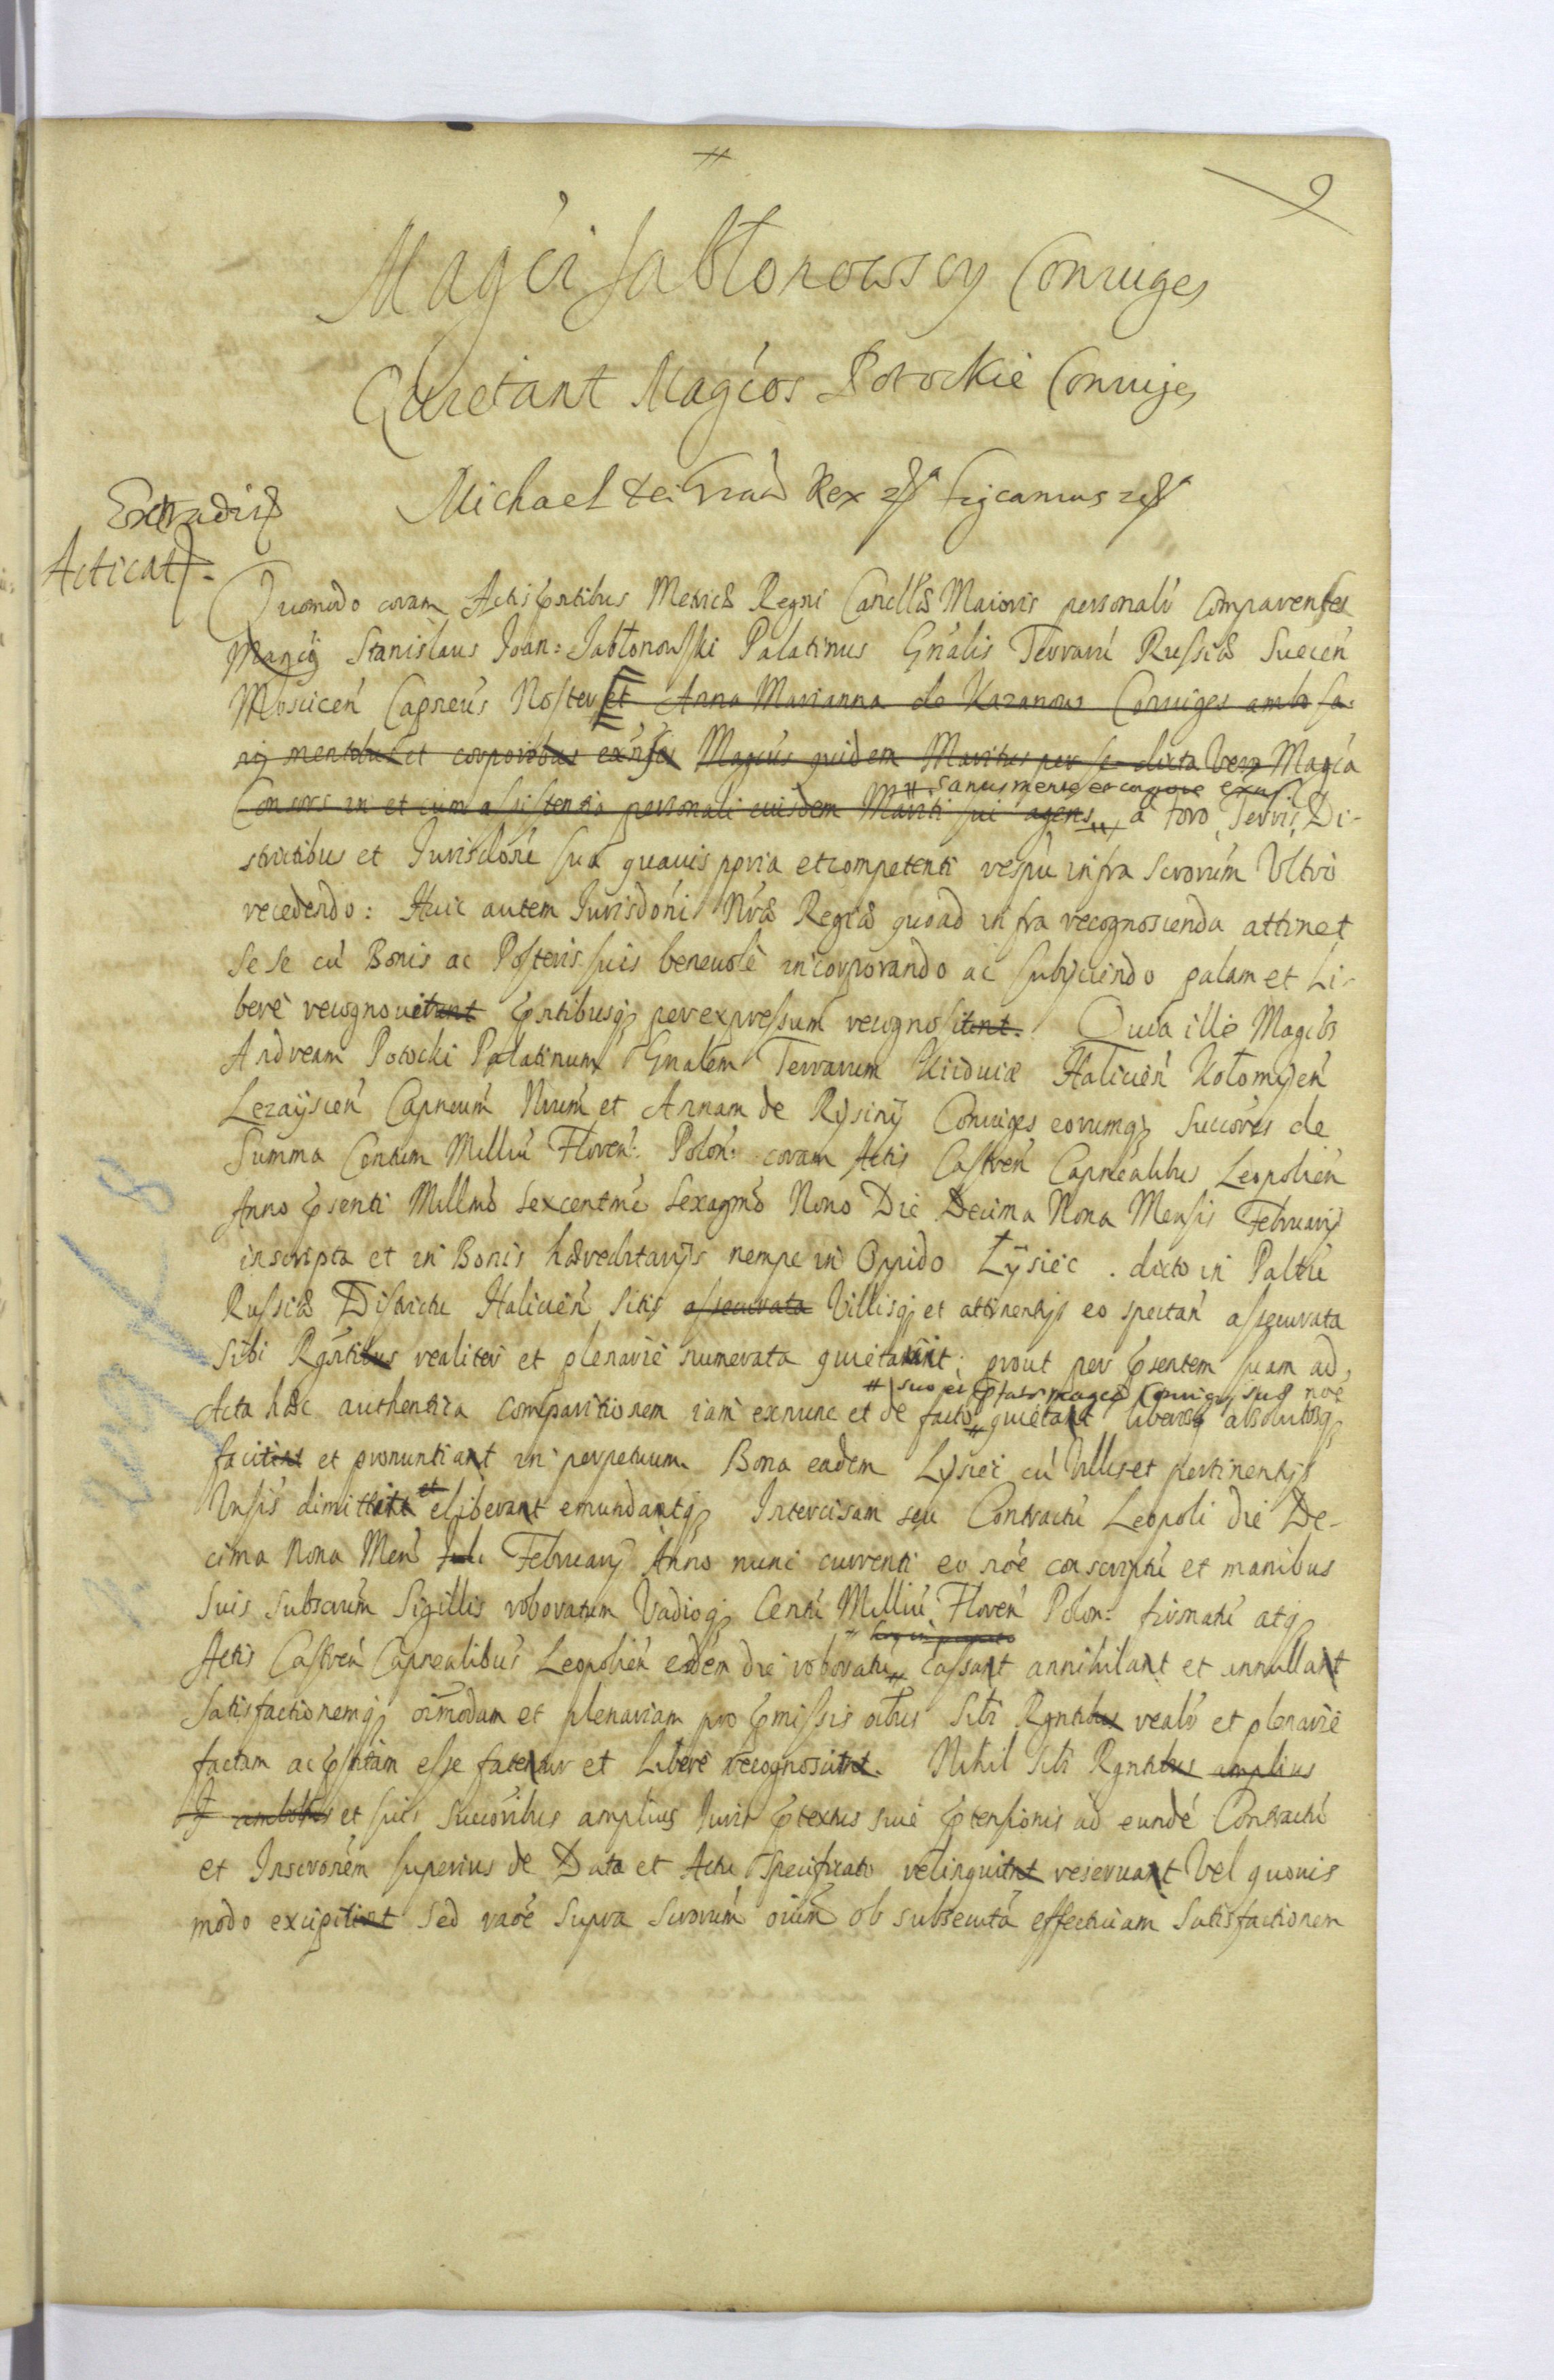 9
Magći Jabłonowscy Coniuges
Quietant Magćos Potockie Coniuges
Michael Dei Graã Rex
Acticat
Quomodo coram Actis pntibus Metricæ Regni Cancllæ Maioris personalr Comparentes
Magcij Stanislaus Joan: Jabłonowski Palatinus Gńalis Terrarú Russiæ Suecen
Capneús Noster et Anna Marianna de Kazanow Coniuges ambo sa-
nij mentibus et corporibus Magcús quidem Maritus per se dicta vero Magća
sanus mente et corpore
Consors in et cum assistentia personali eiusdem Mariti sui agens a foro, Terris, Di-
strictibus et Jurisdóne sua quauis ppria et competenti respú infra Scrorúm Vltro
recedendo: Huic autem Jurisdóni Nrǽ Regiæ quoad infra recognoscenda attinet
Se Se cú Bonis ac Posteris suis beneuolè incorporando ac subijciendo palam et Li-
berè recognouerunt pntibusq3 per expressum recognoscunt. Quia ille Magcós
Andream Potocki Palatinum Gnalem Terrarum Kijouiæ Halicień Kołomyień
Lezayscień Capneúm Nrúm et Annam de Rysiny Coniuges eorumq3 Succóres de
Summa Centum Milliú Floreń: Polon: coram Actis Castreń Capneálibus Leopolień
Anno psenti Millmó Sexcentmó Sexagmó Nono Die Decima Nona Mensis Februarij
inscripta et in Bonis hæreditarijs nempe in Oppido Łysiec . dicto in Paltú
Russiæ Districtu Halicień sitis assecurata Villisq3 et attinentijs eo spectań assecurata
Sibi Rgntibus realiter et plenariè numerata quietarunt; prout per psentem suam ad
suo et noé
Acta hæc authentica comparitionem iam exnunc et de facto quietant liberosq3 absolutosq3
faciunt et pronuntiant in perpetuum. Bona eadem Łysiec cú Villis et pertinentijs
et
dimittunt eliberant emundantq3 Intercisam seu Contractú Leopoli die De-
cima Nona Meń Juli Februarij Anno nunc currenti eo noé conscriptú et manibus
Suis Subscrúm Sigillis roboratum Vadioq3 Centú Milliú Floreń Polon: firmatú atq3
Actis Castreń Capnealibus Leopolień eadém die roboratú Cassant annihilant et annullant
Satisfactionemq3 oímodam et plenariam pro pmissis oíbus Sibi Rgntibus realr et plenariè
factam ac pstitam esse fatentur et Liberè recognoscunt. Nihil sibi Rgntibus amplius
et suis Succóribus amplius Juris ptextus siué ptensionis ad eundé Contractú
et Inscrónem superius de Data et Actu specificato relinquunt reseruant Vel quouis
modo excipiunt Sed raóe Supra Scrorúm oíum ob subsecutá effectiuam Satisfactionem